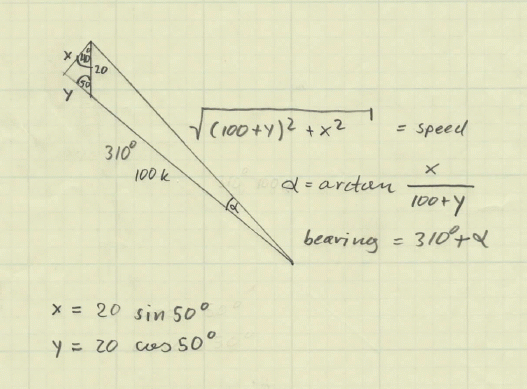 x 40° 20
y 50
310°
100 k
α
√(100+y)² + x² = speed
α = arctan x / 100+y
bearing = 310° + α
x = 20 sin 50°
y = 20 cos 50°